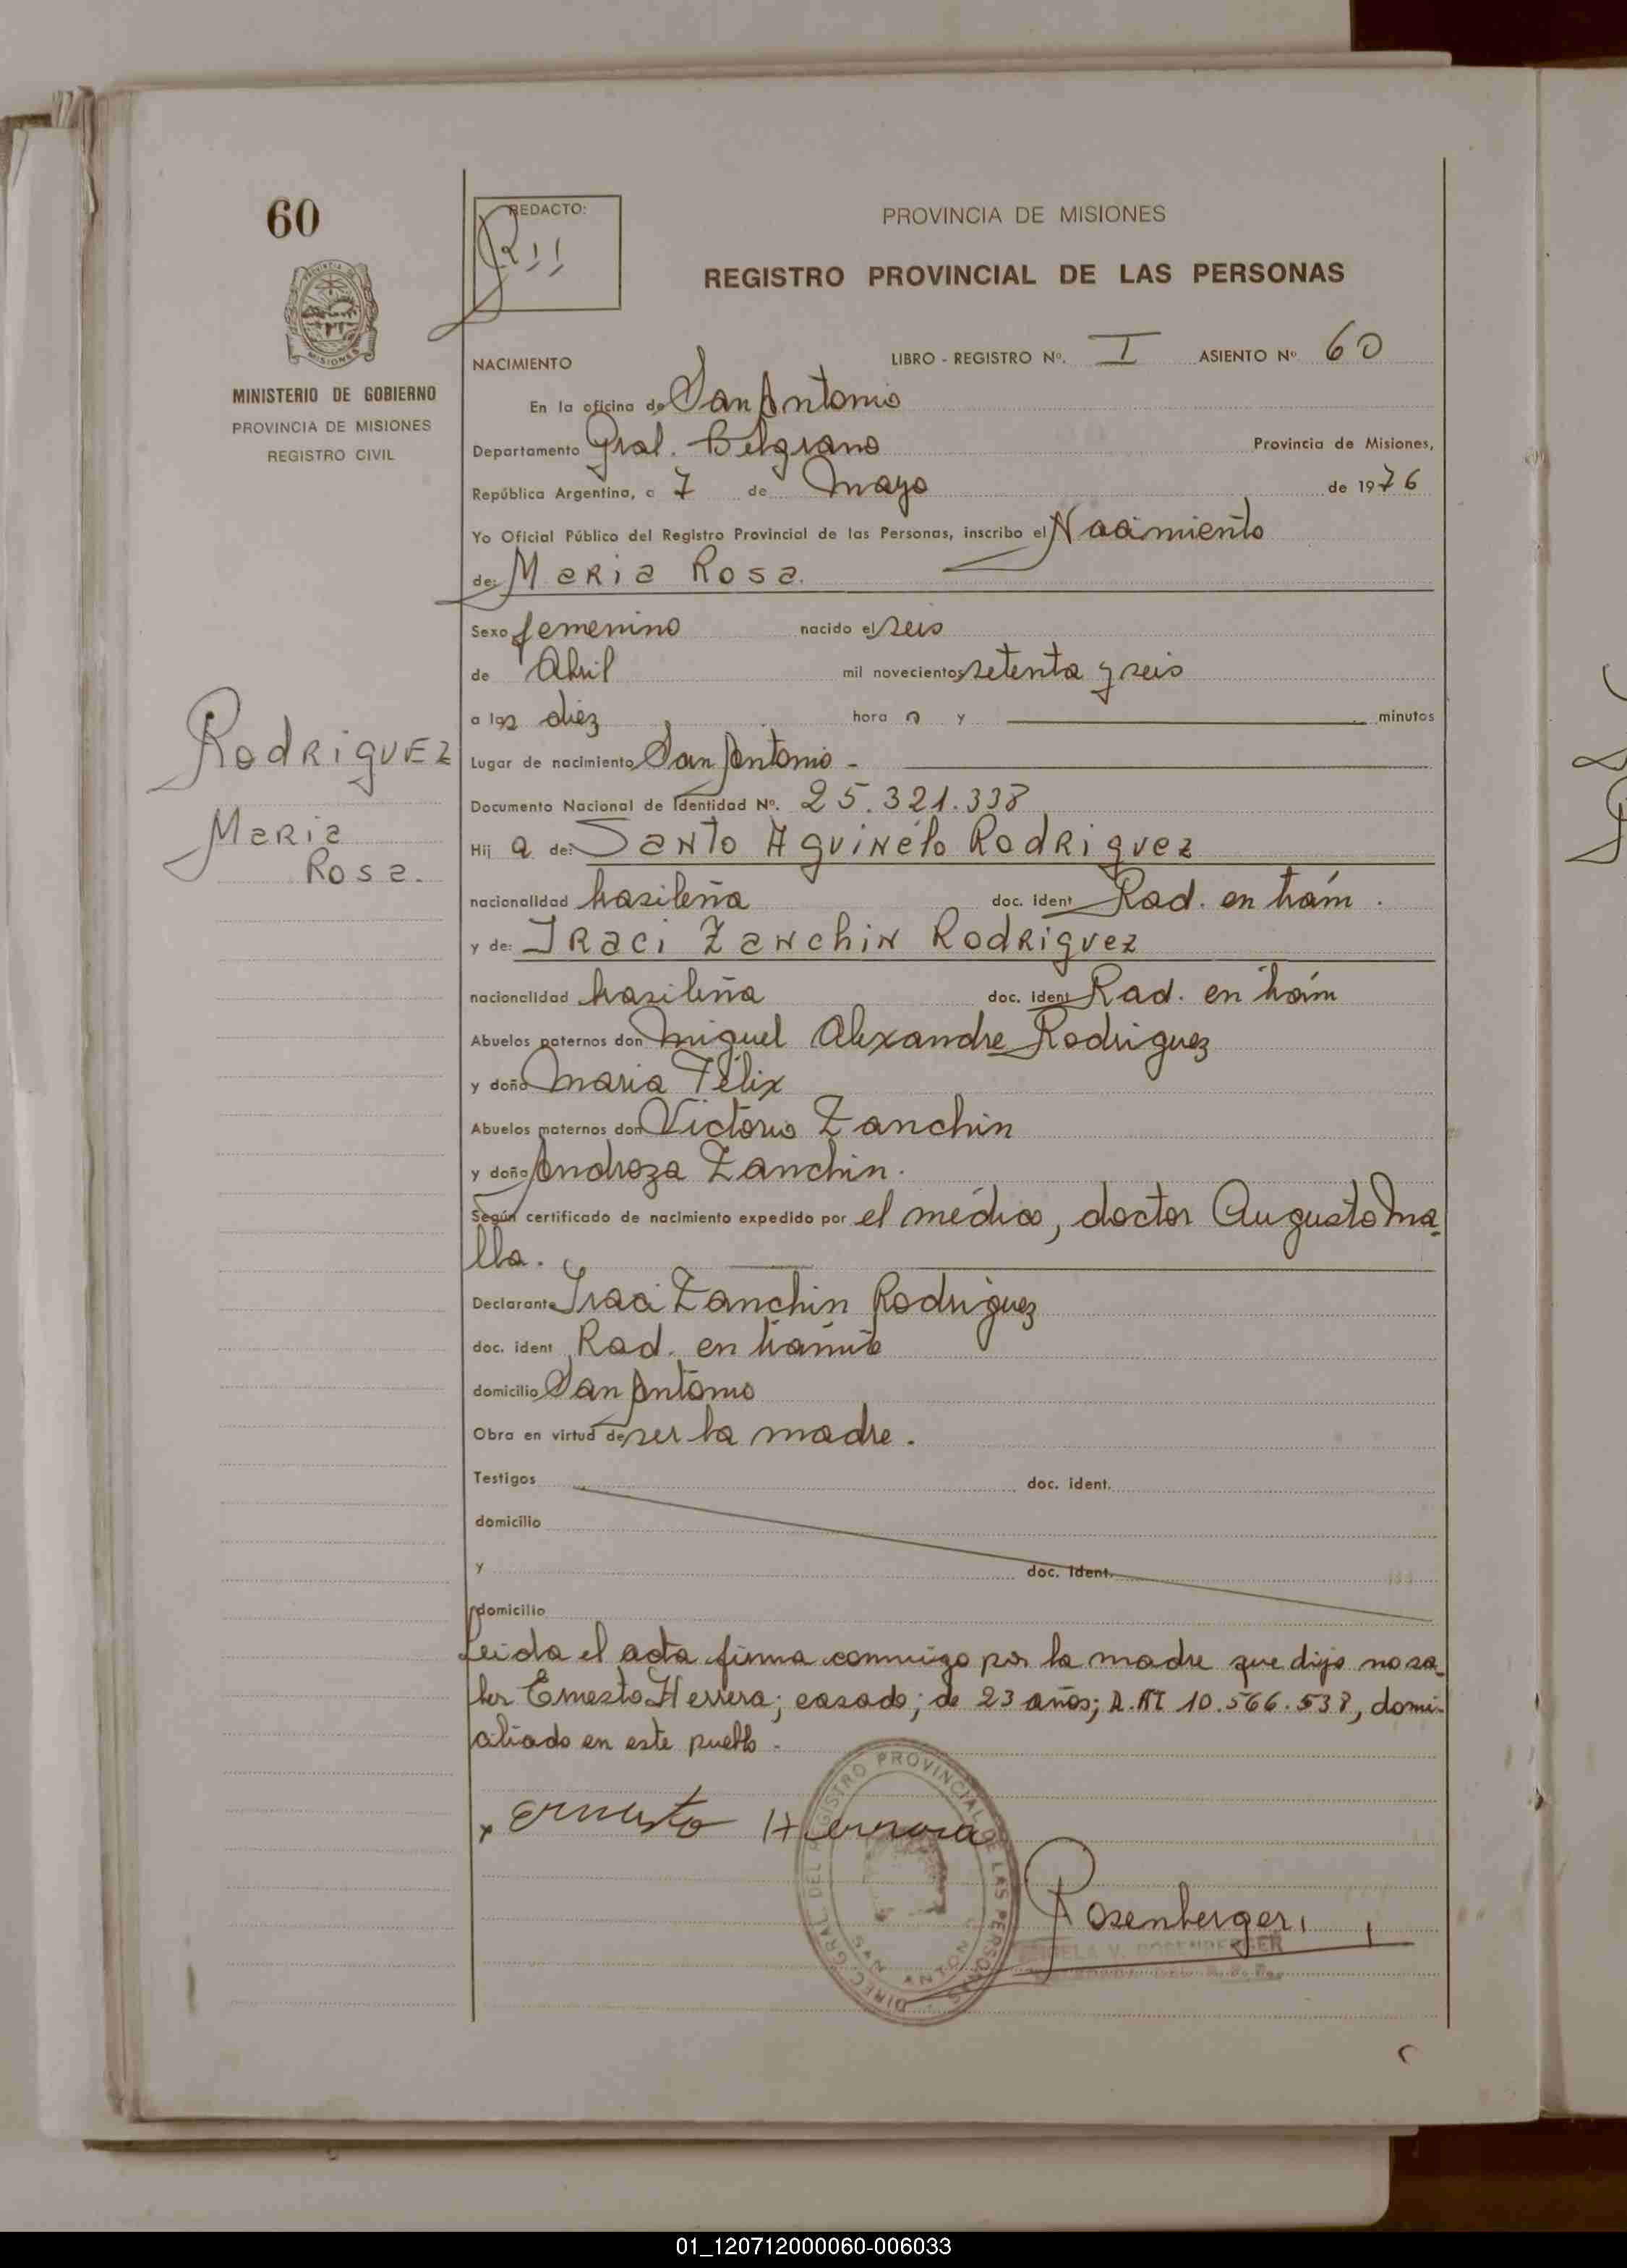 60
REDACTO:
PROVINCIA DE MISIONES
REGISTRO PROVINCIAL DE LAS PERSONAS
MISIONES
MINISTERIO DE GOBIERNO
PROVINCIA DE MISIONES
REGISTRO CIVIL
NACIMIENTO LIBRO - REGISTRO Nº. I ASIENTO Nº 60
En la oficina de San Antonio
Departamento Gral. Belgrano Provincia de Misiones,
República Argentina, a 7 de Mayo de 1976
Yo Oficial Público del Registro Provincial de las Personas, inscribo el Nacimiento
de: Maria Rosa.
Sexo femenino nacido el seis
de Abril mil novecientos setenta y seis
a las diez hora y minutos
Lugar de nacimiento San Antonio -
Rodriguez
Maria
Rosa.
Documento Nacional de Identidad Nº. 25.321.338
Hij a de: Santo Aguinélo Rodriguez
nacionalidad brasileña doc. ident Rad. en trám.
y de: Iraci Zanchin Rodriguez
nacionalidad brasileña doc. ident Rad. en trám
Abuelos paternos don Miguel Alexandre Rodriguez
y doña Maria Félix
Abuelos maternos don Victorio Zanchin
y doña Androza Zanchin.
Según certificado de nacimiento expedido por el médico, doctor Augusto Ma-
lla.
Declarante Iraci Zanchin Rodriguez
doc. ident Rad. en trámite
domicilio San Antonio
Obra en virtud de ser la madre.
Testigos doc. ident.
domicilio
y doc. ident.
domicilio
Leida el acta firma conmigo por la madre que dijo no sa-
ber Ernesto Herrera; casado; de 23 años; 10.566.538, domi-
ciliado en este pueblo.
Ernesto Herrera
DIREC. GRAL. DEL REGISTRO PROVINCIAL DE LAS PERSONAS
SAN ANTONIO
Rosenberger
V. ROSENBERGER
01_120712000060-006033